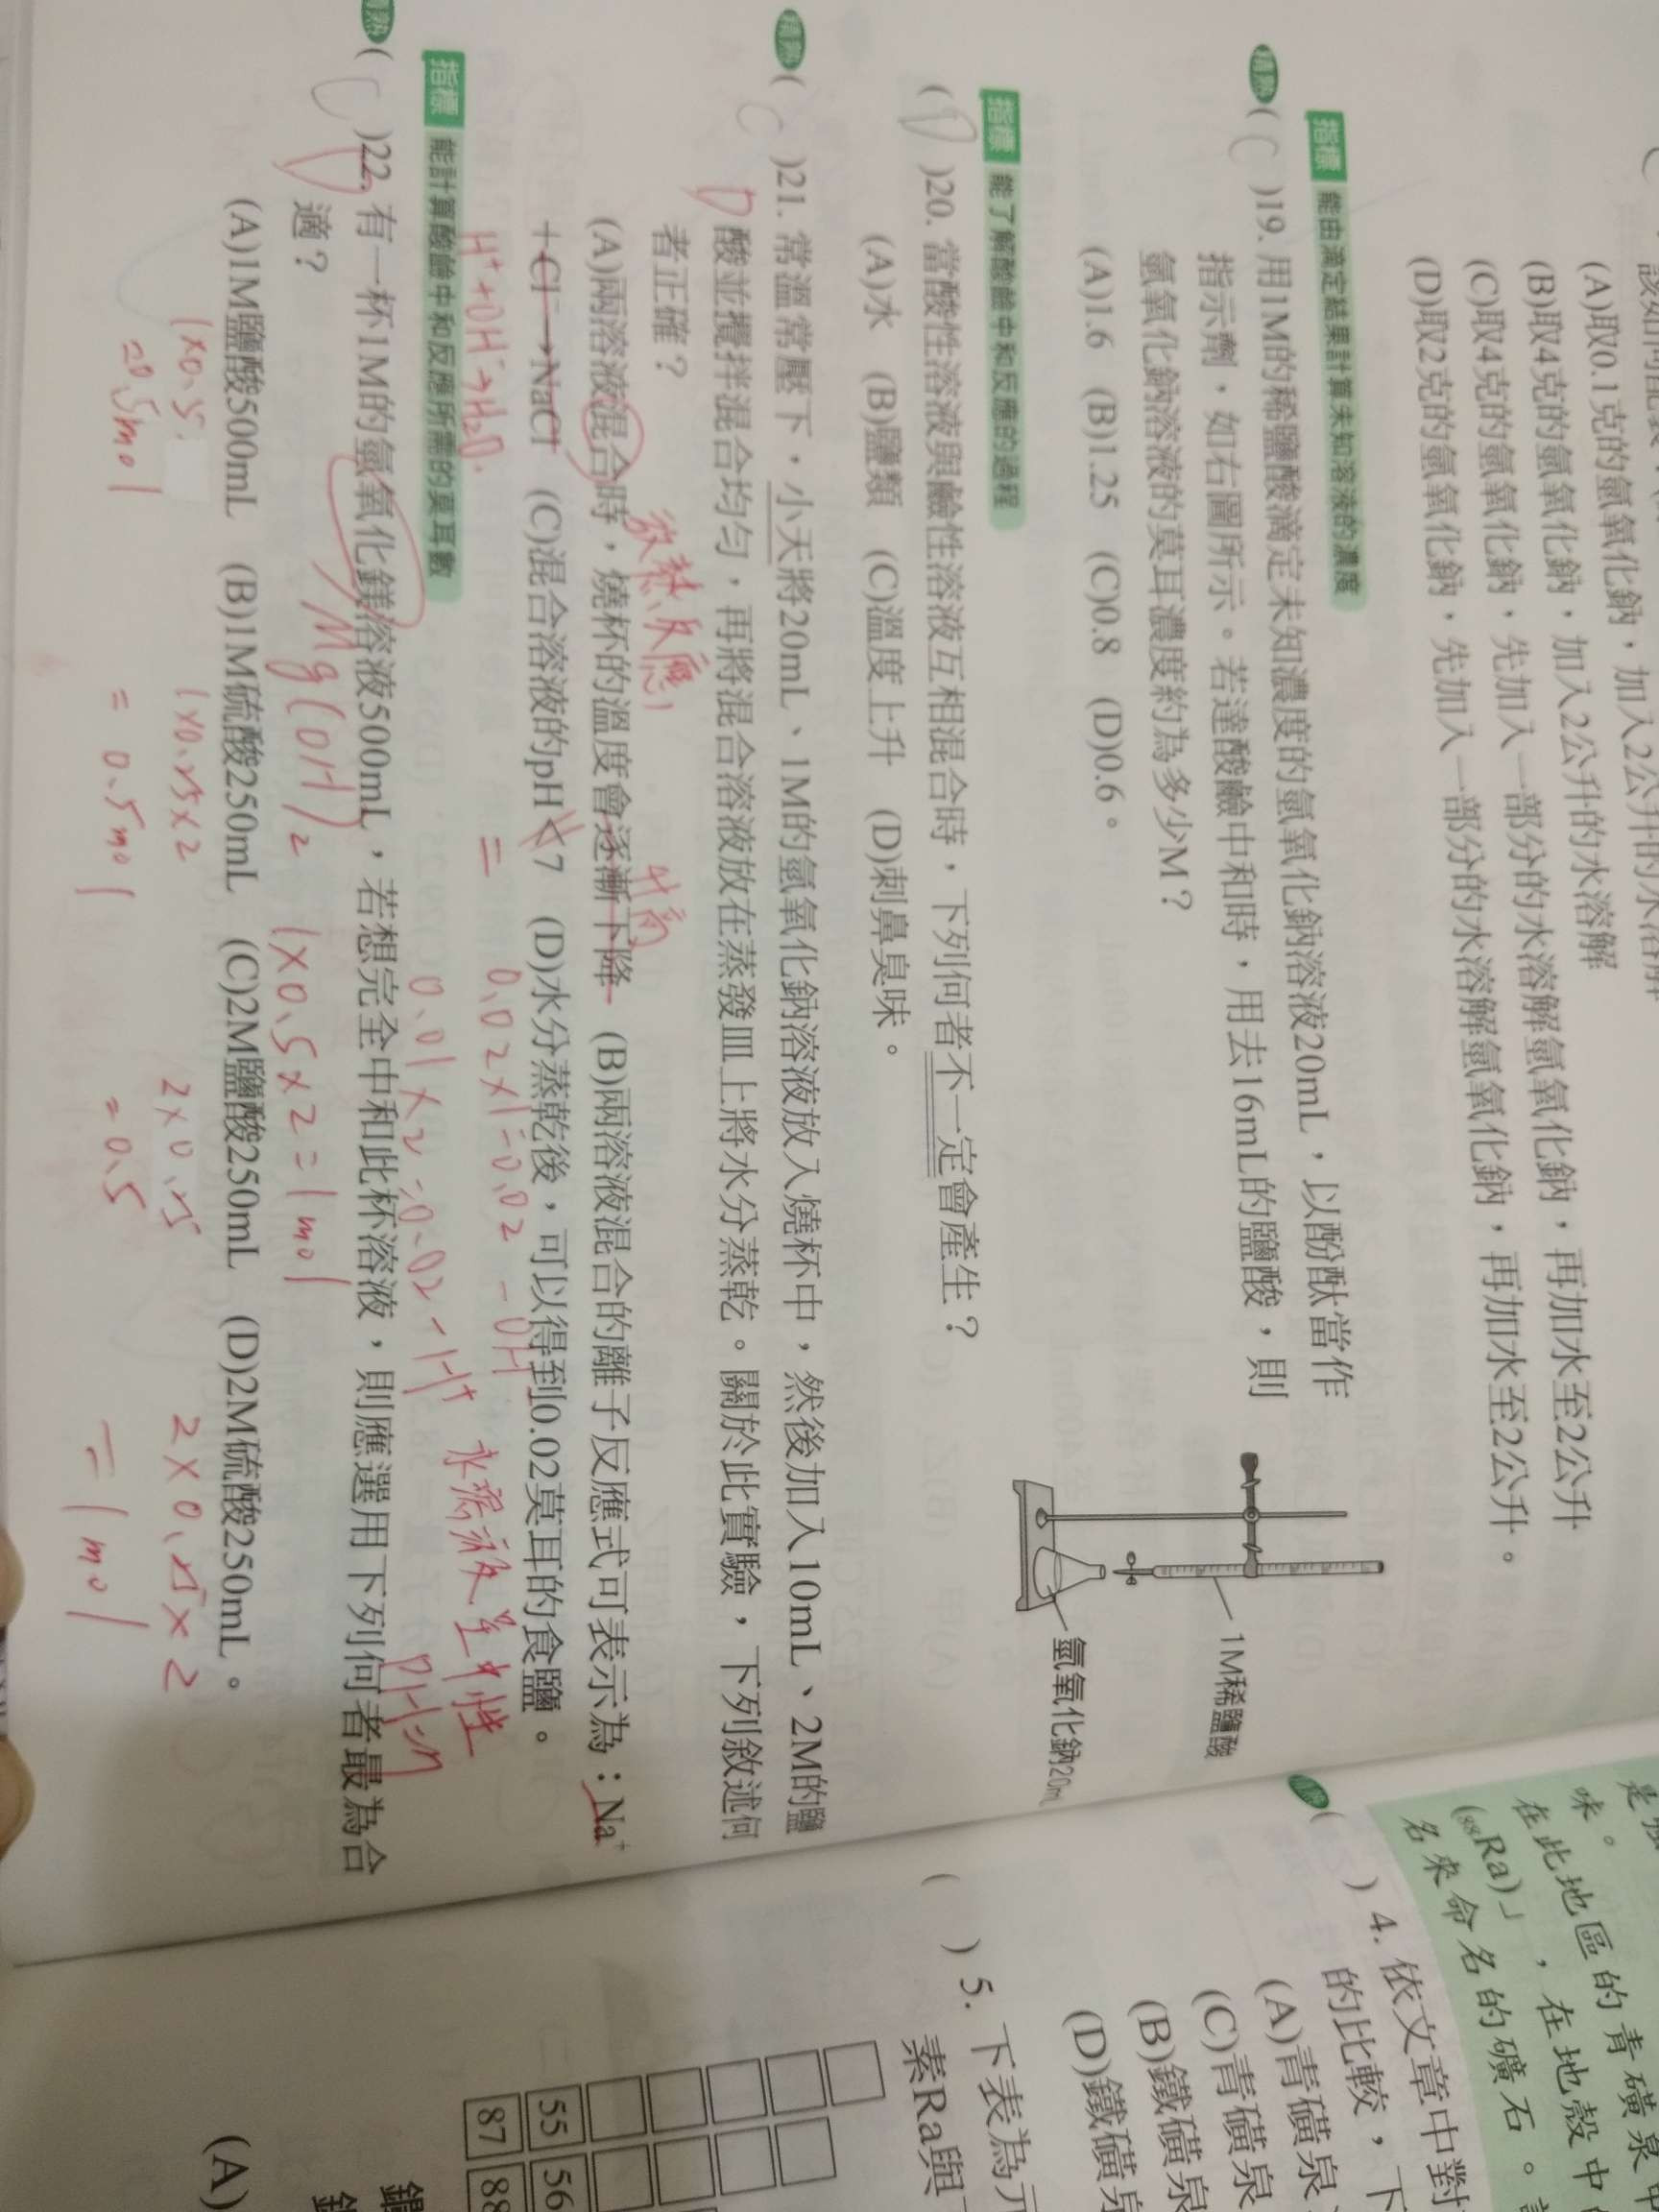 (A)取0.1克的氫氧化鈉，加入2公升的水溶解
(B)取4克的氫氧化鈉，加入2公升的水溶解
(C)取4克的氫氧化鈉，先加入一部分的水溶解氫氧化鈉，再加水至2公升
(D)取2克的氫氧化鈉，先加入一部分的水溶解氫氧化鈉，再加水至2公升。
指標 能由滴定結果計算未知溶液的濃度
精熟( C )19. 用1M的稀鹽酸滴定未知濃度的氫氧化鈉溶液20mL，以酚酞當作
指示劑，如右圖所示。若達酸鹼中和時，用去16mL的鹽酸，則
氫氧化鈉溶液的莫耳濃度約為多少M？
(A)1.6 (B)1.25 (C)0.8 (D)0.6。
1M稀鹽酸
氫氧化鈉20m
指標 能了解酸鹼中和反應的過程
( D )20. 當酸性溶液與鹼性溶液互相混合時，下列何者不一定會產生？
(A)水 (B)鹽類 (C)溫度上升 (D)刺鼻臭味。
精熟( C )21. 常溫常壓下，小天將20mL、1M的氫氧化鈉溶液放入燒杯中，然後加入10mL、2M的鹽
D 酸並攪拌混合均勻，再將混合溶液放在蒸發皿上將水分蒸乾。關於此實驗，下列敘述何
者正確？
放熱反應
升高
(A)兩溶液混合時，燒杯的溫度會逐漸下降 (B)兩溶液混合的離子反應式可表示為：Na⁺
＋Cl⁻→NaCl (C)混合溶液的pH＜7 (D)水分蒸乾後，可以得到0.02莫耳的食鹽。
H⁺+OH⁻→H₂O.
=
0.02×1=0.02 - OH
0.01×2=0.02 - H⁺
水溶液呈中性
PH=7
指標 能計算酸鹼中和反應所需的莫耳數
精熟( C )22. 有一杯1M的氫氧化鎂溶液500mL，若想完全中和此杯溶液，則應選用下列何者最為合
D 適？
Mg(OH)₂
1×0.5×2=1mol
(A)1M鹽酸500mL (B)1M硫酸250mL (C)2M鹽酸250mL (D)2M硫酸250mL。
1×0.5
=0.5mol
1×0.25×2
=0.5mol
2×0.25
=0.5
2×0.25×2
=1mol
味。
在此地區的青礦泉
(₈₈Ra)」，在地殼中
名來命名的礦石。
( ) 4. 依文章中對
的比較，下
(A)青礦泉
(C)青礦泉
(B)鐵礦泉
(D)鐵礦泉
( ) 5. 下表為元
素Ra與
55 56
87 88
(A)